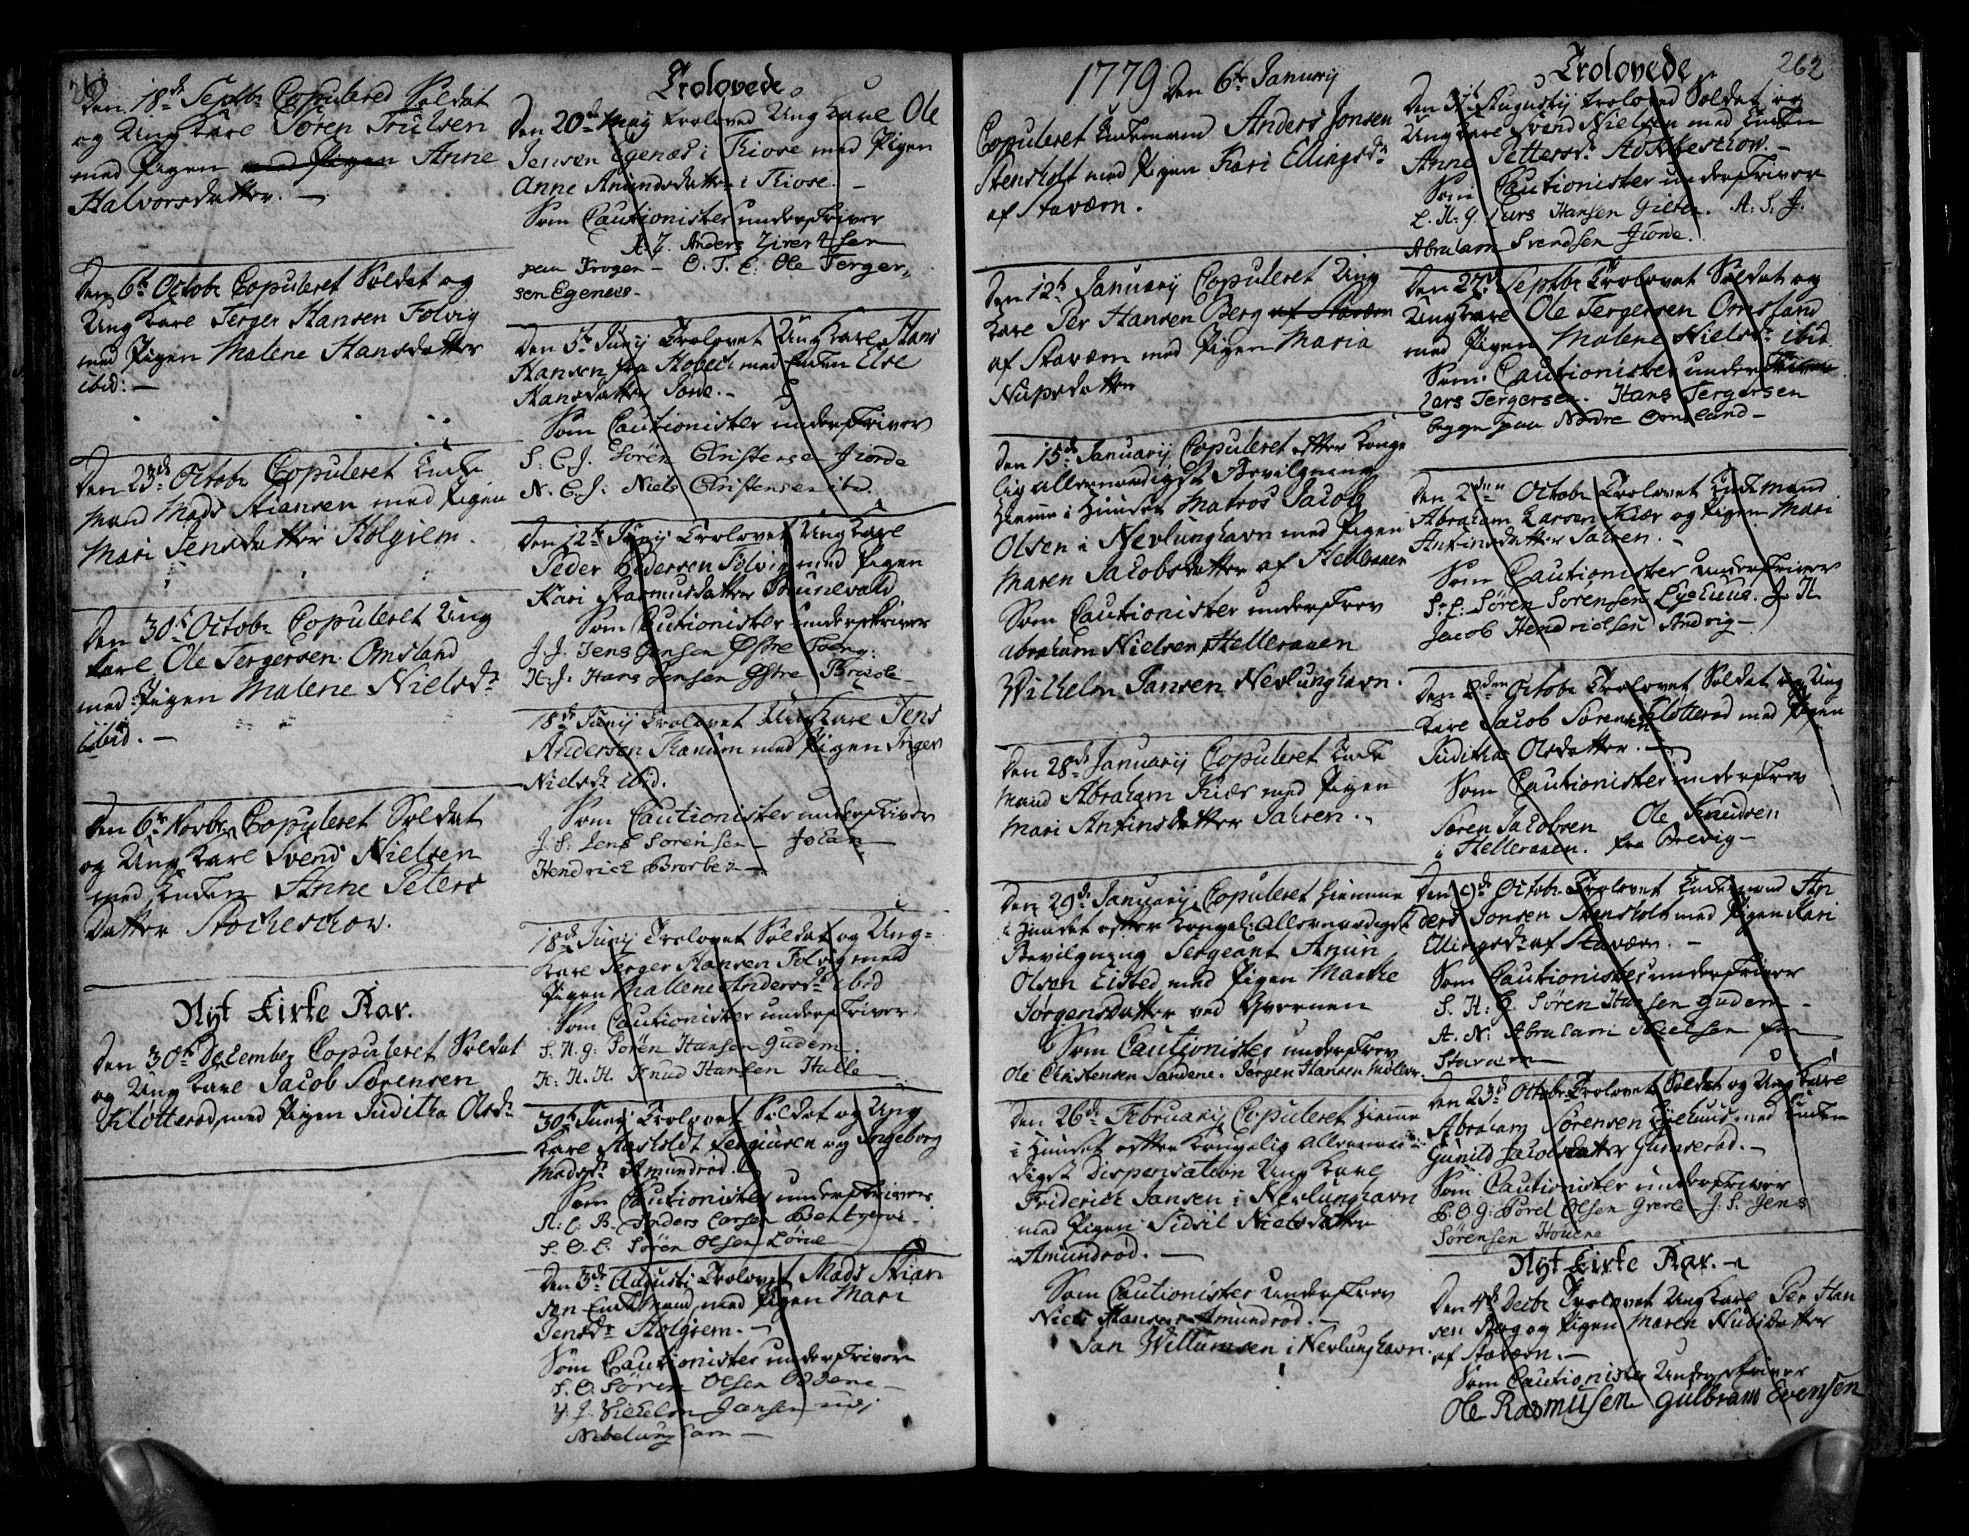 Den 18de Septbr Copulered Soldat
og Ung Karl Søren Trulsen
med Pigen med Pigen Anne
Halvorsdatter. –
Den 6te Octobr Copuleret Soldat og
Ung Karl Terger Hansen Folvig
med Pigen Malene Hansdatter
ibid: –
Den 23de Octobr Copuleret Enke
Mand Mads Stiansen med Pigen
Mari Jensdatter Holgrem.
Den 30te Octobr Copuleret Ung
karl Ole Tergersen Omsland
med Pigen Malene Nielsdr
ibid. –
Den 6te Novbr Copuleret Soldat
og Ung karl Svend Nielsen
med Enken Anne Peters
Datter Stocheschow.
Nyt Kirke Aar.
Den 30te December Copuleret Soldat
og Ung karl Jacob Sørensen
Klotterød med Pigen Juditha Olsdr
Trolovede
Den 20de May troloved Ung karl Ole
Jensen Egenes i Kiose med Pigen
Anne Amundsdatter i Kiose. –
Som Cautionister underskriver
Anders
paa Krogen – O. T. E. Ole Terger-
sen Egenes –
Den 5te Junij Trolovet Ung karl Hans
Hansen fra med Enken Else
Hansdatter –
Som Cautionister underskriver
S. C. J. Søren Christensen Jiorde
N. C. J. Niels Christensen ibd.
Den 12te Junij Trolovet Ung karl
Peder Pedersen Folvig med Pigen
Kari Rasmusdatter Brunevald
Som Cautionister underskriver
J. J. Jens Jensen Østre
H. J. Hans Jensen Østre
18de Junij Trolovet Ung karl Jens
Andersen Hanum med Pigen Inger
Nielsdr ibid.
Som Cautionister underskriver
J. S. Jens Sorensen – Johan
Hendrich –
18de Junij Trolovet Soldat og Ung-
karl Terger Hansen Folvig med
Pigen Mallene Andersdr ibid
Som Cautionister underskriver
S. H. G. Søren Hansen Gudem
K. H. H. Knud Hansen Halle
30te Junij Trolovet Soldat og Ung
karl og Ingeborg
Madsdr Amundrød.
Som Cautionister underskriver
A. L. B. Anders Larsen
S. O. L. Søren Olsen
Den 3de Augusti Trolovet Mads Stian
sen Enkemand med Pigen Mari
Jensdr Holgrem. –
Som Cautionister underskriver
S. O. Søren Olsen Oddene –
Vilhelm Jansen
1779 Den 6te Januarij
Copuleret Enkemand Anders Jonsen
Stensholt med Pigen Kari Ellingsdr
af Staværn.
Den 12te Januarij Copuleret Ung
karl Per Hansen Berg af Staværn
af Staværn med Pigen Maria
Nupsdatter
Den 15de Januarij Copuleret efter Konge
lig allernaadigst Bevilgning
Hiemme i Huuset Matros Jacob
Olsen i Nevlunghavn med Pigen
Maren Jacobsdatter af Helleraaen
Som Cautionister underskrev
Abraham Nielsen Helleraaen
Wilhelm Jansen Nevlunghavn.
Den 28de Januarij Copuleret Enke
Mand Abraham Kiær med Pigen
Mari Antinsdatter
Den 29de Januarij Copuleret Hiemme
i Huuset efter Kongel: Allernaadigst
Bevilgning Sergeant Amun
Olsen Eisted med Pigen Marthe
Jørgensdatter ved Qvernen
Som Cautionister underskrev
Ole Christensen Sandene. Jørgen Hansen
Den 26de Februarij Copuleret Hiemme
i Huuset efter Kongelig allernaa-
digst Dispensation Ung karl
Friderich Jansen i Nevlunghavn
med Pigen Sidsil Nielsdatter
Amundrød. –
Som Cautionister underskrev
Niels Hansen Amundrød. –
Jan Willumsen i Nevlunghavn.
Trolovede 262
Den Augustij trolovd Soldat og
Ung karl Svend Nielsen med Enken
Anne Pettersdr Stokkeschow. –
Som Cautionister underskriver
L. H. G. Lars Hansen A. S. J.
Abraham Svendsen Jiorde.
Den 27de Septbr Trolovet Soldat og
Ung karl Ole Tergersen Omsland
med Pigen Malene Nielsdr ibid
Som Cautionister underskriver
Lars Tergersen. Hans Tergersen
begge paa Nordre Omsland –
Den 2den Octobr Trolovet Enkemand
Abraham Larsen Kiær og Pigen Mari
Antinsdatter
Som Cautionister underskriver
S. S. Søren Sorensen J. H.
Jacob Hendrichsen Andvig –
Den 2den Octobr Trolovet Soldat og Ung
karl Jacob Sørensen Klotterød med Pigen
Juditha Olsdatter. –
Som Cautionister underskrev
Søren Jacobsen Ole Knudsen
i Helleraaen. fra Brevig –
Den 9de Octobr Trolovet Enkemand An
ders Jonsen Stensholt med Pigen Kari
Ellingsdr af Staværn. –
Som Cautionister underskriver
S. H. G. Søren Hansen Gudem –
A. N. Abraham Nielsen paa
Staværn
Den 23de Octobr Trolovet Soldat og Ung karl
Abraham Sørensen med Enken
Gunild Jacobsdatter Gumserød. –
Som Cautionister underskriver
Olsen J. S. Jens
Sørensen
Nyt Kirke Aar. –
Den 4de Decbr Trolovet Ung karl Per Han
sen Berg og Pigen Maren Nubsdatter
af Staværn. –
Som Cautionister Underskriver
Ole Rasmusen Gulbrans Evensen